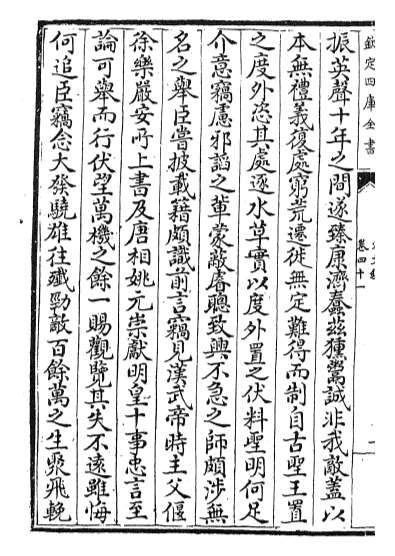 欽定四庫全書
卷四十一
振英聲十年之間遂臻康濟蠢茲獯鬻誠非我敵蓋以
本無禮義復處窮荒遷徙無定難得而制自古聖王置
之度外恣其處逐水草實以度外置之伏料聖明何足
介意竊慮邪謟之輩蒙蔽睿聰致興不急之師頗涉無
名之舉臣嘗披載籍頗識前言竊見漢武帝時主父偃
徐樂嚴安所上書及唐相姚元崇獻明皇十事忠言至
論可舉而行伏望萬機之餘一賜觀覽其失不遠雖悔
何追臣竊念大發驍雄往殱勁敵百餘萬之生聚飛輓